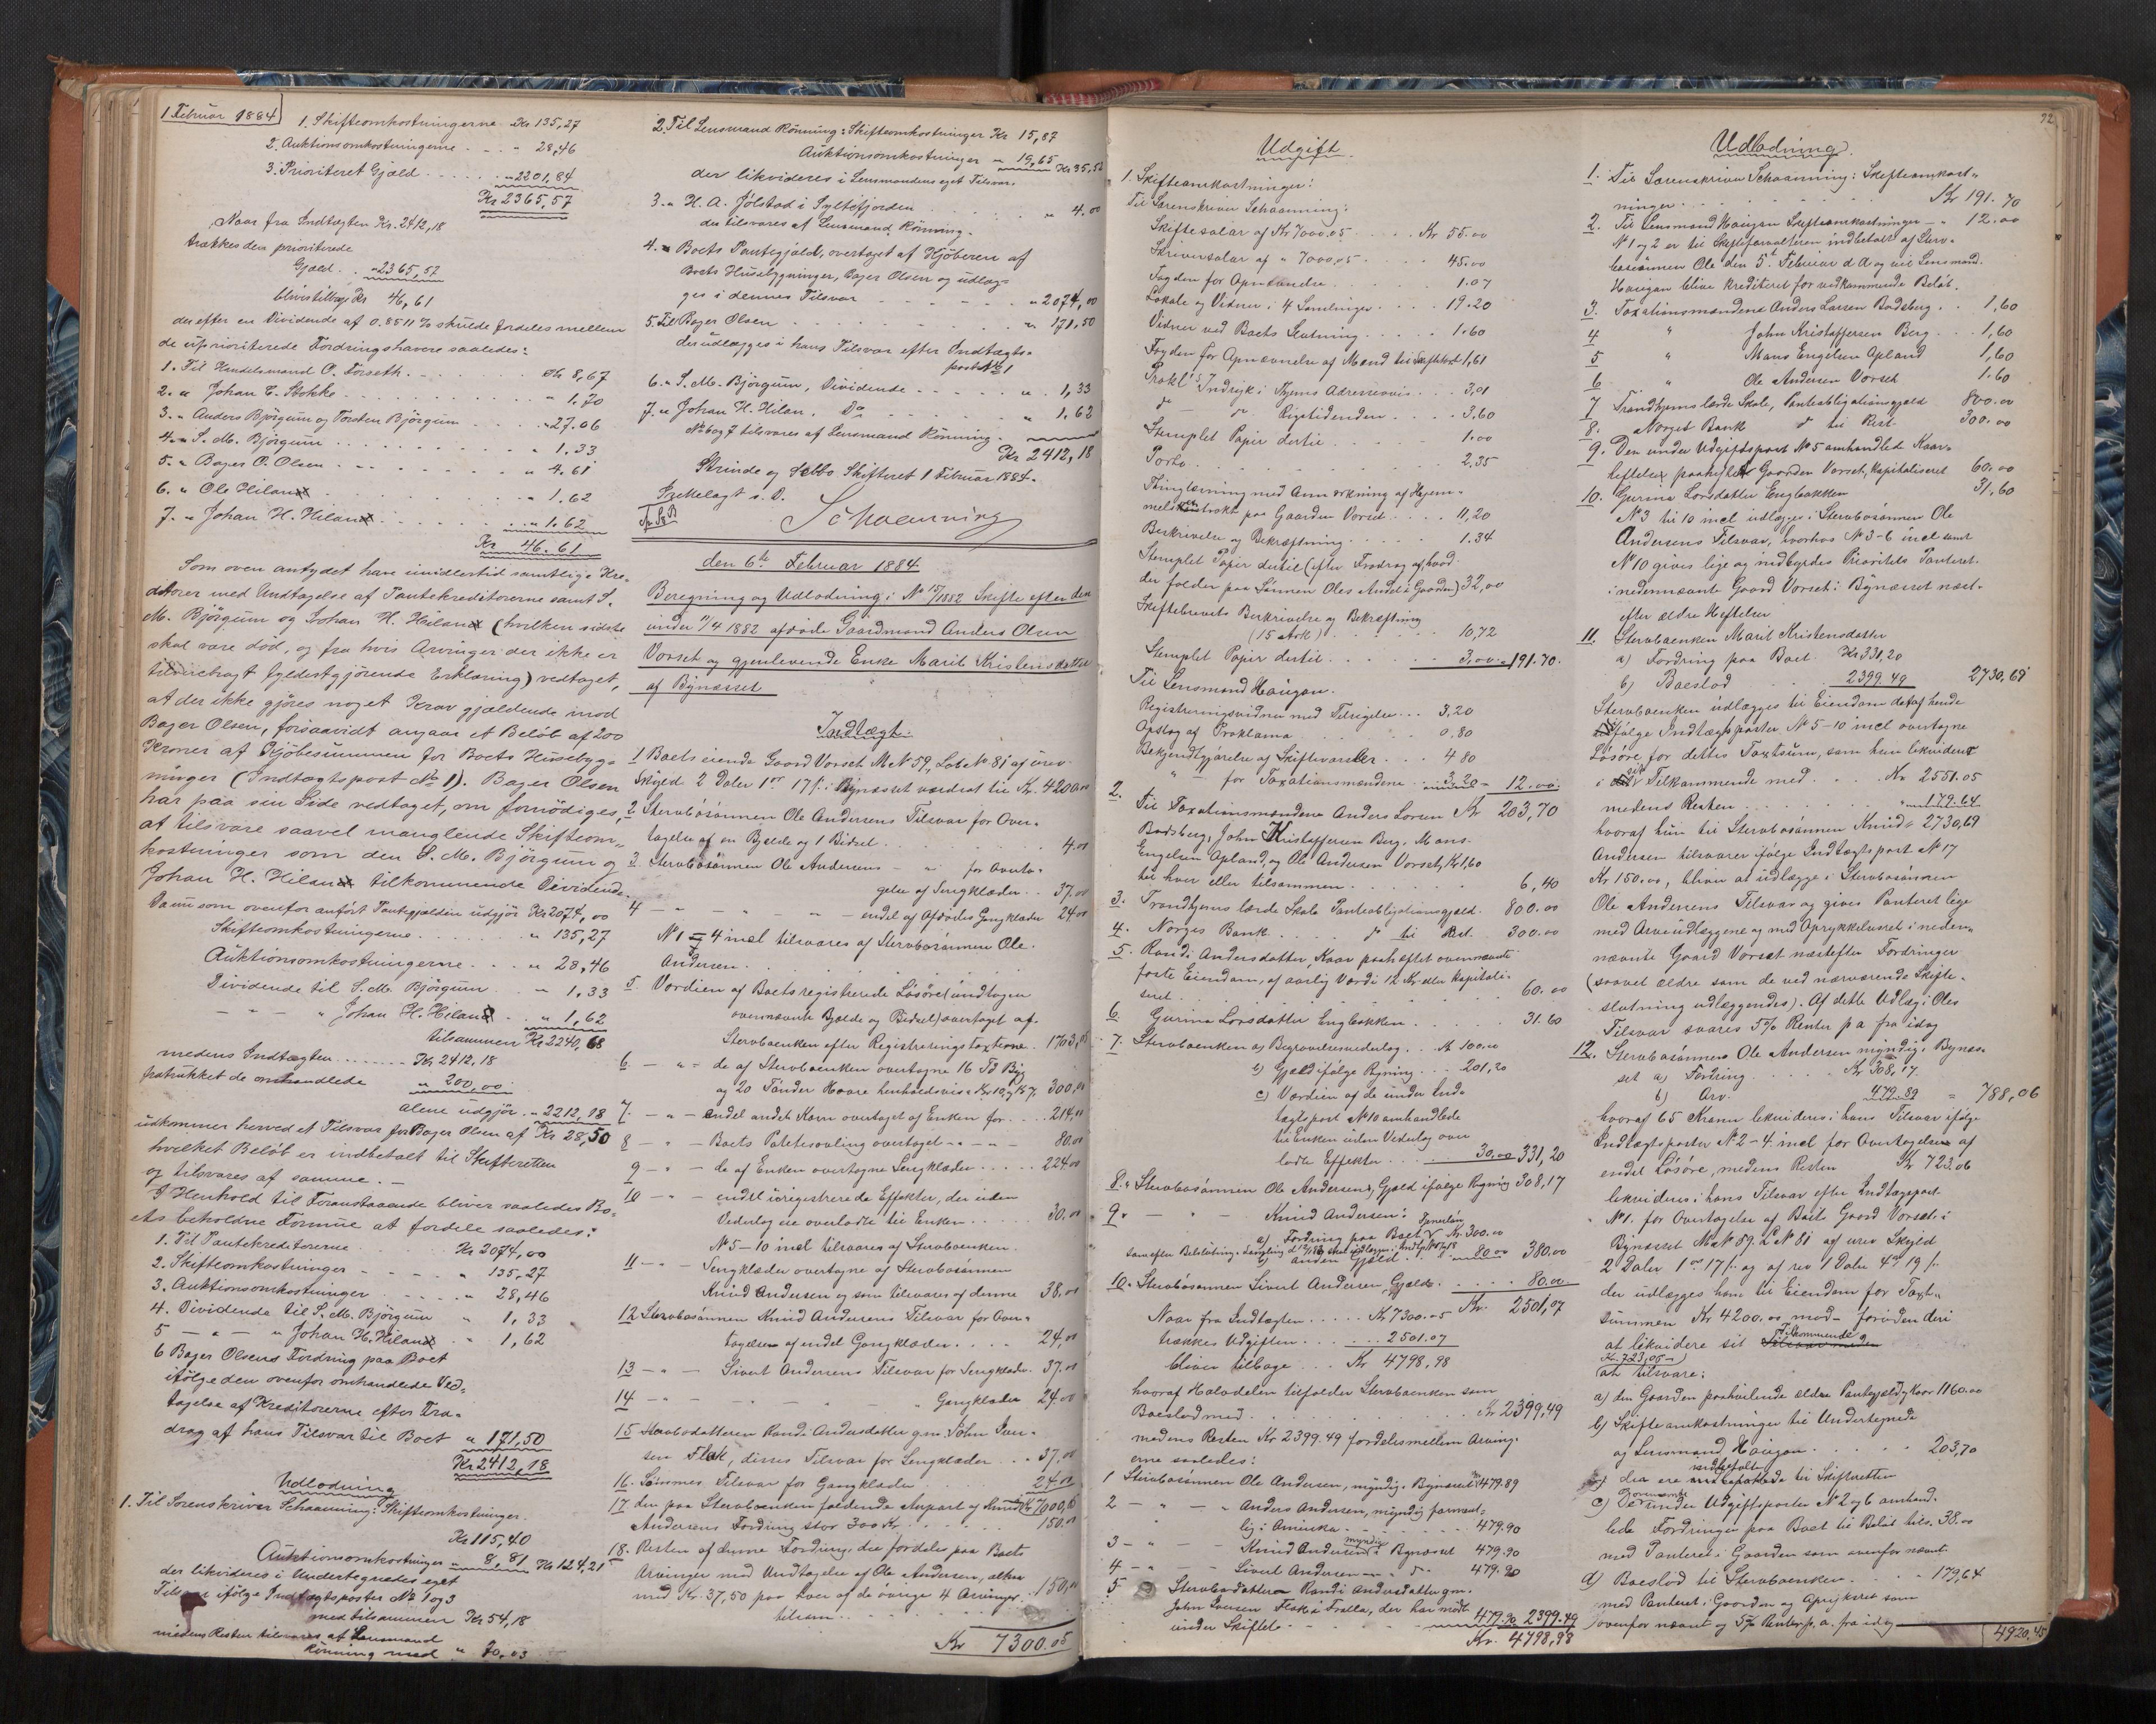 1 Februar 1884
1. Skifteomkostningerne Kr 135,27
2. Auktionsomkostningerne . . . " 28,46
3. Prioriteret Gjæld . . . . . . " 2201,84
Kr 2365,57
Naar fra Indtægten Kr. 2412,18
trækkes den prioriterede
Gjæld . . " 2365,57
blive tilbage Kr 46,61
der efter en Dividende af 0.8511 % skulde fordeles mellem
de uprioriterede Fordringshavere saaledes:
1. Til Handelsmand O. Forseth . . Kr 8,67
2. " Johan E. Stokke . . . " 1.70
3. " Anders Bjørgum og Torsten Bjørgum . . . " 27.06
4. " S. M. Bjørgum . . . " 1.33
5. " Bager O. Olsen . . . " 4.61
6. " Ole Hilan . . . " 1.62
7. " Johan H. Hilan . . . " 1.62
Kr 46.61
Som oven antydet have imidlertid samtlige Kre-
ditorer med Undtagelse af Pantekreditorerne samt S.
M. Bjørgum og Johan H. Hilan (hvilken sidste
skal være død, og fra hvis Arvinger der ikke er
tilveiebragt fyldestgjørende Erklæring) vedtaget,
at der ikke gjøres noget Krav gjældende mod
Bager Olsen, forsaavidt angaar et Beløb af 200
Kroner af Kjøbesummen for Boets Husebyg-
ninger (Indtægtspost No 1). Bager Olsen
har paa sin Side vedtaget, om fornødiges,
at tilsvare saavel manglende Skifteom-
kostninger som den S. M. Bjørgum og
Johan H. Hilan tilkommende Dividende.
Da nu som ovenfor anført Pantegjælden udgjør Kr 2074,00
Skifteomkostningerne . . . " 135,27
Auktionsomkostningerne . . . " 28,46
Dividende til S. M. Bjørgum . . " 1,33
— " — " Johan H. Hilan . . " 1,62
tilsammen Kr 2240,68
medens Indtægten . . . . . Kr 2412,18
fratrukket de omhandlede " 200,00
alene udgjør . " 2212,18
udkommer herved et Tilsvar for Bager Olsen af Kr 28,50
hvilket Beløb er indbetalt til Skifteretten
og tilsvares af samme. —
I Henhold til Foranstaaende bliver saaledes Bo-
ets beholdne Formue at fordele saaledes:
1. Til Pantekreditorerne Kr 2074,00
2. Skifteomkostninger . . . " 135,27
3. Auktionsomkostninger . . . " 28,46
4. Dividende til S. M. Bjørgum " 1,33
5 — " — " Johan H. Hilan . . " 1,62
6 Bager Olsens Fordring paa Boet
ifølge den ovenfor omhandlede Ved-
tagelse af Kreditorerne efter Fra-
drag af hans Tilsvar til Boet " 171,50
Kr 2412,18
Udlodning
1. Til Sorenskriver Schaanning: Skifteomkostninger
Kr 115,40
Auktionsomkostninger " 8,81 Kr 124,21
der likvideres i Undertegnedes eget
Tilsvar ifølge Indtægtsposter No 1 og 3
med tilsammen Kr 54,18
medens Resten tilsvares af Lensmand
Rønning med " 70,03
2. Til Lensmand Rønning: Skifteomkostninger Kr 15,87
Auktionsomkostninger " 19,65 Kr 35,52
der likvideres i Lensmandens eget Tilsvar
3. " H. A. Jølstad i Syltefjorden . . . " 4.00
der tilsvares af Lensmand Rønning.
4. " Boets Pantegjæld, overtaget af Kjøberen af
Boets Husebygninger, Bager Olsen og udlæg-
ges i dennes Tilsvar . . . " 2074,00
5. Til Bager Olsen . . . " 171,50
der udlægges i hans Tilsvar efter Indtægts-
post No 1
6. " S. M. Bjørgum, Dividende . . . " 1,33
7. " Johan H. Hilan. Do . . . " 1,62
No 6 og 7 tilsvares af Lensmand Rønning.
Kr 2412,18
Strinde og Selbo Skifteret 1 Februar 1884.
Schaanning
den 6te Februar 1884
Beregning og Udlodning i No 15/1882 Skifte efter den
under 11/4 1882 afdøde Gaardmand Anders Olsen
Vorset og gjenlevende Enke Marit Kristensdatter
af Bynæsset
Indtægt.
1 Boets eiende Gaard Vorset M No 59, Løb No 81 af urev.
Skyld 2 Daler 1 Ort 17 s. i Bynæsset værdsat til Kr. 4200.00
2 Stervbosønnen Ole Andersens Tilsvar for Over-
tagelse af en Bjelde og 1 Bidsel . . . 4.00
3. Stervbosønnen Ole Andersens — " for Overta-
gelse af Sengklæder . . 37.00
4 — — " — endel af Afdødes Gangklæder 24.00
No 1 — 4 incl tilsvares af Stervbosønnen Ole
Andersen
5. Værdien af Boets registrerede Løsøre (undtagen
ovennævnte Bjelde og Bidsel) overtaget af
Stervboenken efter Registreringstaxterne . 1703,05
6. — " — de af Stervboenken overtagne 16 Td Byg
og 20 Tønder Havre henholdsvis a Kr 10 og Kr 7, 300,00
7. — " — endel andet Korn overtaget af Enken for . . 214,00
8 — " — Boets Potetesavling overtaget — " — " — 80.00
9 — " — de af Enken overtagne Sengklæder . . . 224.00
10 — " — endel uregistrerede Effekter, der uden
Vederlag ere overladte til Enken . . . 30.00
No 5 — 10 incl tilsvares af Stervboenken.
11 — " — Sengklæder overtagne af Stervbosønnen
Knud Andersen og som tilsvares af denne 38.00
12 Stervbosønnen Knud Andersens Tilsvar for Over-
tagelsen af endel Gangklæder . . . 24,00
13 — " — Sivert Andersens Tilsvar for Sengklæder. 37.00
14 — " — — " Gangklæder 24.00
15 Stervbodatteren Randi Andersdatter gm. John Iver-
sen Flak, dennes Tilsvar for Sengklæder . . 37.00
16. Sammes Tilsvar for Gangklæder 24.00
Kr 7000,05
17 den paa Stervboenken faldende Anpart af Knud
Andersens Fordring stor 300 Kr . . . 150.00
18. Resten af denne Fordring, der fordeles paa Boets
Arvinger med Undtagelse af Ole Andersen, altsaa
med Kr. 37,50 paa hver af de øvrige 4 Arvinger
tilsam. . . . 150,00
Kr 7300.05
92
Udgift.
1. Skifteomkostninger:
Til Sorenskriver Schaanning:
Skiftesalær af Kr 7000.05 . . . Kr 55.00
Skriversalær af " 7000,05 . . . 45.00
Fogden for Opnævnelse . . . 1.07
Lokale og Vidner i 4 Samlinger . . . 19.20
Vidner ved Boets Slutning . . . 1.60
Fogden for Opnævnelse af Mænd til 1,61
Prokl's Indryk i Thjems Adresseavis . . . 3,01
do do Rigstidenden . . . 3,60
Stemplet Papir dertil . . . 1.00
Porto . . . 2,35
Thinglæsning med Anmærkning af Hjem-
paa Gaarden Vorset . . . 11,20
Beskrivelse og Bekræftning . . . 1.34
Stemplet Papir dertil (efter Fradrag af hvad
der falder paa Sønnen Oles Andel i Gaarden) 32,00
Skiftebrevets Beskrivelse og Bekræftning
(15 Ark) . . . 10,72
Stemplet Papir dertil . . . 3,00 — 191.70.
Til Lensmand Haugan.
Registreringsvidner med Tilsigelse . . . 3,20
Opslag af Proklama . . . 0.80
Bekjendtgjørelse af Skiftevarsler . . . 4 80
" for Taxationsmændene . . . 3.20 — 12.00.
Kr 203,70
2. Til Taxationsmændene Anders Larsen
Bodsberg, John Kristoffersen Berg, Mons
Engelsen Apland, og Ole Andersen Vorset, Kr 1,60
til hver eller tilsammen . . . 6,40
3. Trondhjems lærde Skole Panteobligationsgjæld . 800.00
4. Norges Bank . . . do til Rest. 300.00
5. Randi Andersdatter, Kaar paaheftet ovennævnte
faste Eiendom, af aarlig Værdi 12 Kr eller kapitali-
seret . . . 60.00
6. Gurina Larsdatter Engbakken . . . 31.60
7. Stervboenken a) Begravelsesvederlag . Kr 100.00
b) Gjæld ifølge Regning . . . 201,20
c) Værdien af de under Ind-
tægtspost No 10 omhandlede
til Enken uden Vederlag over-
ladte Effekter . . . 30,00 331,20
8. " Stervbosønnen Ole Andersens, Gjæld ifølge Regning 308,17
9. — " — Knud Andersen:
a) Fordring paa Boet Kr. 300.00
b) anden Gjæld . . . 80.00 380.00
10. " Stervbosønnen Sivert Andersen, Gjæld . . . 80.00
Kr. 2501,07
Naar fra Indtægten . . . Kr 7300.05
trækkes Udgiften . . . 2501.07
bliver tilbage . . . Kr 4798,98
hvoraf Halvdelen tilfalder Stervboenken som
Boeslod med . . . Kr 2399,49
medens Resten Kr 2399.49 fordeles mellem Arving-
erne saaledes:
1 Stervbosønnen Ole Andersen, myndig, Bynæsset Kr 479.89
2 — " — " Anders Andersen, myndig forment-
lig i Amerika . . . 479.90
3 — " — Knud Andersen myndig i Bynæsset 479.90
4 — " — Sivert Andersen — " do 479.90
5 Stervbodatteren Randi Andersdatter gm.
John Iversen Flak i Frella, der har mødt
under Skiftet . . . 479.90 2399.49
Kr. 4798,98
Udlodning.
1. Til Sorenskriver Schaanning: Skifteomkost-
ninger . . . Kr 191.70
2. Til Lensmand Haugan Skifteomkostninger — " 12.00
No 1 og 2 er til Skifteforvalteren indbetalt af Sterv-
bosønnen Ole den 5te Februar d A og vil Lensmand
Haugan blive krediteret for vedkommende Beløb.
3. Taxationsmændene Anders Larsen Bodsberg . . 1,60
4 " John Kristoffersen Berg . . 1,60
5 " Mons Engelsen Apland 1,60
6 " Ole Andersen Vorset 1.60
7 Trondhjems lærde Skole, Panteobligationsgjæld 800.00
8. Norges Bank do til Rest. 300.00
9. Den under Udgiftspost No 5 omhandlede Kaar-
heftelse paaheftet Gaarden Vorset, kapitaliseret 60.00
10. Gurina Larsdatter Engbakken 31,60
No 3 til 10 incl udlægges i Stervbosønnen Ole
Andersens Tilsvar, hvorhos No 3-6 incl samt
No 10 gives lige og indbyrdes Prioritets Panteret
i nedennævnte Gaard Vorset i Bynæsset næst-
efter ældre Heftelser
11. Stervboenken Marit Kristensdatter
a) Fordring paa Boet Kr 331,20
b) Boeslod 2399.49 2730,69
Stervboenken udlægges til Eiendom det af hende
ifølge Indtægtsposter No 5-10 incl overtagne
Løsøre for dettes Taxtsum, som hun likviderer
i sit Tilkommende med . . . Kr 2551.05
medens Resten . . . " 179.64
Kr 2730,69
hvoraf hun til Stervbosønnen Knud
Andersen tilsvarer ifølge Indtægtspost No 17
Kr 150.00, bliver at udlægge i Stervbosønnen
Ole Andersens Tilsvar og gives Panteret lige
med Arveudlæggene og med Oprykkelsesret i neden-
nævnte Gaard Vorset næstefter Fordringer
(saavel ældre som de ved nærværende Skifte-
slutning udlæggendes). Af dette Udlæg i Oles
Tilsvar svares 5% Renter p a fra idag
12. Stervbosønnen Ole Andersen myndig, Bynæs-
set a) Fordring . . . Kr 308,17
b) Arv 479.89 = 788,06
hvoraf 65 Kroner likvideres i hans Tilsvar ifølge
Indtægtsposter No 2-4 incl for Overtagelsen af
endel Løsøre, medens Resten Kr 723.06
likvideres i hans Tilsvar efter Indtægtspost
No 1. for Overtagelse af Boets Gaard Vorset i
Bynæsset M No 59. L No 81 af urev Skyld
2 Daler 1 ort 17 s. og af rev 1 Daler 4 ort 19 s.
der udlægges ham til Eiendom for Taxt-
summen Kr 4200.00 mod — foruden deri
at likvidere sit Tilkommende
Kr. 723,06 —
at tilsvare:
a) den Gaarden paahvilende ældre Pantegjæld og Kaar 1160.00
b) Skifteomkostninger til Undertegnede
og Lensmand Haugan . . . 203,70
der ere indbetalte til Skifteretten
c) ovennævnte under Udgiftsposter No 2 og 6 omhand-
lede Fordringer paa Boet til Beløb tils. 38.00
med Panteret i Gaarden som ovenfor nævnt
d) Boeslod til Stervboenken . . . 179,64
med Panteret i Gaarden og Oprykkelsesret som
ovenfor nævnt og 5% Renter p. a. fra idag
4920,45